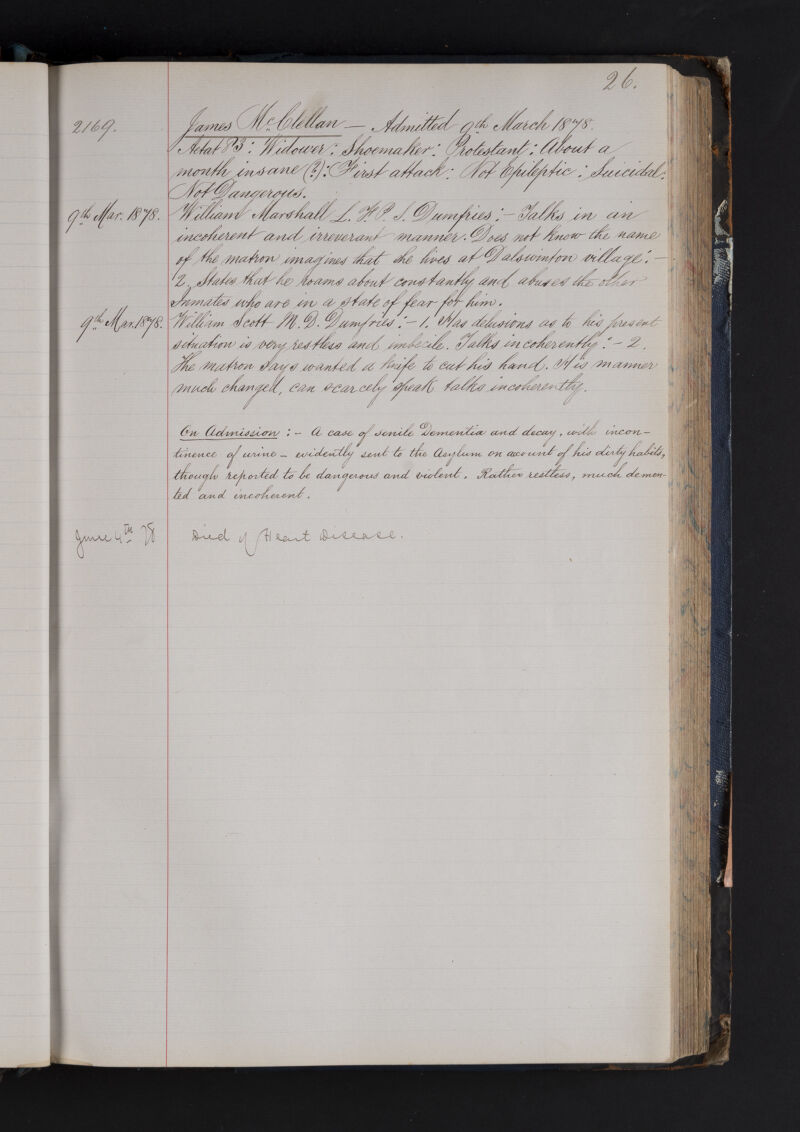 26.
2169. James McClellan — Admitted 9th March 1878.
Aetat 83: Widower: Shoemaker: Protestant: About a
month insane (?): First attack: Not Epileptic: Suicidal:
Not Dangerous.
9th Mar. 1878. William Marshall L.F.P.S. Dumfries:- Talks in an
incoherent and irreverant manner. Does not know the name
of the matron imagines that she lives at Dalswinton village:-
2. States that he roams about constantly and abuses the other
Inmates who are in a state of fear for him.
9th Mar. 1878. William Scott M.D. Dumfries:- 1. Has delusions as to his present
situation is very restless and imbecile. Talks incoherently:- 2.
The matron says wanted a knife to cut his hand. His manner
much changed, can scarcely speak talks incoherently.
On Admission :- A case of senile Dementia and decay, with incon-
tinence of urine - evidently sent to the Asylum on account of his dirty habits,
though reported to be dangerous and violent. Rather restless, much demen-
ted and incoherent.
June 4th 78 Died of Heart Disease.